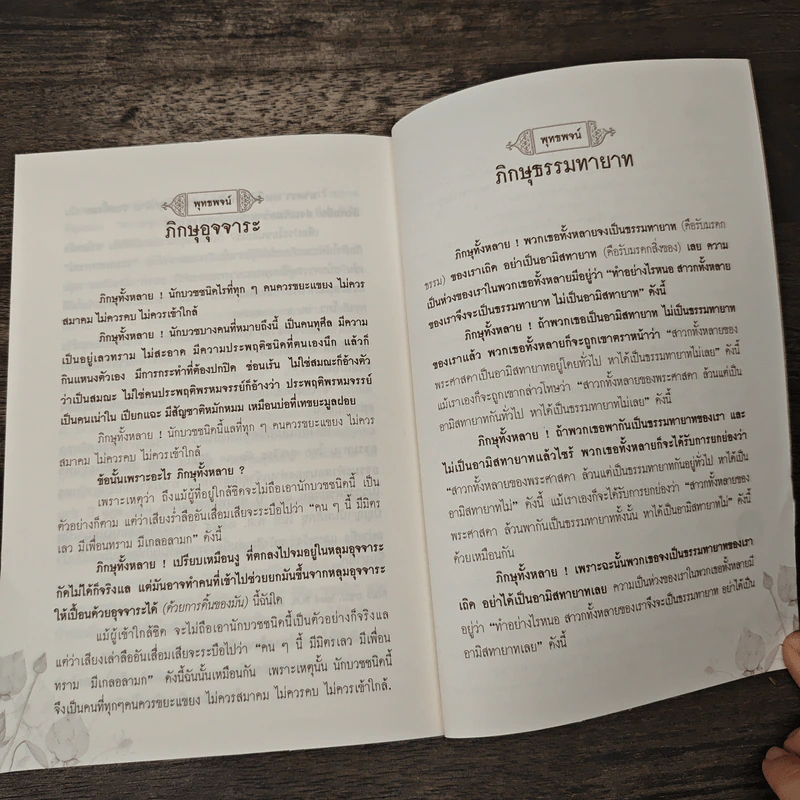 พุทธพจน์
ภิกษุอุจจาระ
ภิกษุทั้งหลาย ! นักบวชชนิดไรที่ทุก ๆ คนควรขยะแขยง ไม่ควร
สมาคม ไม่ควรคบ ไม่ควรเข้าใกล้
ภิกษุทั้งหลาย ! นักบวชบางคนที่หมายถึงนี้ เป็นคนทุศีล มีความ
เป็นอยู่เลวทราม ไม่สะอาด มีความประพฤติชนิดที่ตนเองนึก แล้วก็
กินแหนงตัวเอง มีการกระทำที่ต้องปกปิด ซ่อนเร้น ไม่ใช่สมณะก็อ้างตัว
ว่าเป็นสมณะ ไม่ใช่คนประพฤติพรหมจรรย์ก็อ้างว่า ประพฤติพรหมจรรย์
เป็นคนเน่าใน เปียกแฉะ มีสัญชาติหมักหมม เหมือนบ่อที่เทขยะมูลฝอย
ภิกษุทั้งหลาย ! นักบวชชนิดนี้แลที่ทุก ๆ คนควรขยะแขยง ไม่ควร
สมาคม ไม่ควรคบ ไม่ควรเข้าใกล้
ข้อนั้นเพราะอะไร ภิกษุทั้งหลาย ?
เพราะเหตุว่า ถึงแม้ผู้ที่อยู่ใกล้ชิดจะไม่ถือเอานักบวชชนิดนี้ เป็น
ตัวอย่างก็ตาม แต่ว่าเสียงร่ำลืออันเสื่อมเสียจะระบือไปว่า "คน ๆ นี้ มีมิตร
เลว มีเพื่อนทราม มีเกลอลามก" ดังนี้
ภิกษุทั้งหลาย ! เปรียบเหมือนงู ที่ตกลงไปจมอยู่ในหลุมอุจจาระ
กัดไม่ได้ก็จริงแล แต่มันอาจทำคนที่เข้าไปช่วยยกมันขึ้นจากหลุมอุจจาระ
ให้เปื้อนด้วยอุจจาระได้ (ด้วยการดิ้นของมัน) นี้ฉันใด
แม้ผู้เข้าใกล้ชิด จะไม่ถือเอานักบวชชนิดนี้เป็นตัวอย่างก็จริงแล
แต่ว่าเสียงเล่าลืออันเสื่อมเสียจะระบือไปว่า "คน ๆ นี้ มีมิตรเลว มีเพื่อน
ทราม มีเกลอลามก" ดังนี้ฉันนั้นเหมือนกัน เพราะเหตุนั้น นักบวชชนิดนี้
จึงเป็นคนที่ทุกๆคนควรขยะแขยง ไม่ควรสมาคม ไม่ควรคบ ไม่ควรเข้าใกล้.
พุทธพจน์
ภิกษุธรรมทายาท
ภิกษุทั้งหลาย ! พวกเธอทั้งหลายจงเป็นธรรมทายาท (คือรับมรดก
ธรรม) ของเราเถิด อย่าเป็นอามิสทายาท (คือรับมรดกสิ่งของ) เลย ความ
เป็นห่วงของเราในพวกเธอทั้งหลายมีอยู่ว่า "ทำอย่างไรหนอ สาวกทั้งหลาย
ของเราจึงจะเป็นธรรมทายาท ไม่เป็นอามิสทายาท" ดังนี้
ภิกษุทั้งหลาย ! ถ้าพวกเธอเป็นอามิสทายาท ไม่เป็นธรรมทายาท
ของเราแล้ว พวกเธอทั้งหลายก็จะถูกเขาตราหน้าว่า "สาวกทั้งหลายของ
พระศาสดาเป็นอามิสทายาทอยู่โดยทั่วไป หาได้เป็นธรรมทายาทไม่เลย" ดังนี้
แม้เราเองก็จะถูกเขากล่าวโทษว่า "สาวกทั้งหลายของพระศาสดา ล้วนแต่เป็น
อามิสทายาทกันทั่วไป หาได้เป็นธรรมทายาทไม่เลย" ดังนี้
ภิกษุทั้งหลาย ! ถ้าพวกเธอพากันเป็นธรรมทายาทของเรา และ
ไม่เป็นอามิสทายาทแล้วไซร้ พวกเธอทั้งหลายก็จะได้รับการยกย่องว่า
"สาวกทั้งหลายของพระศาสดา ล้วนแต่เป็นธรรมทายาทกันอยู่ทั่วไป หาได้เป็น
อามิสทายาทไม่" ดังนี้ แม้เราเองก็จะได้รับการยกย่องว่า "สาวกทั้งหลายของ
พระศาสดา ล้วนพากันเป็นธรรมทายาททั้งนั้น หาได้เป็นอามิสทายาทไม่" ดังนี้
ด้วยเหมือนกัน
ภิกษุทั้งหลาย ! เพราะฉะนั้นพวกเธอจงเป็นธรรมทายาทของเรา
เถิด อย่าได้เป็นอามิสทายาทเลย ความเป็นห่วงของเราในพวกเธอทั้งหลายมี
อยู่ว่า "ทำอย่างไรหนอ สาวกทั้งหลายของเราจึงจะเป็นธรรมทายาท อย่าได้เป็น
อามิสทายาทเลย" ดังนี้